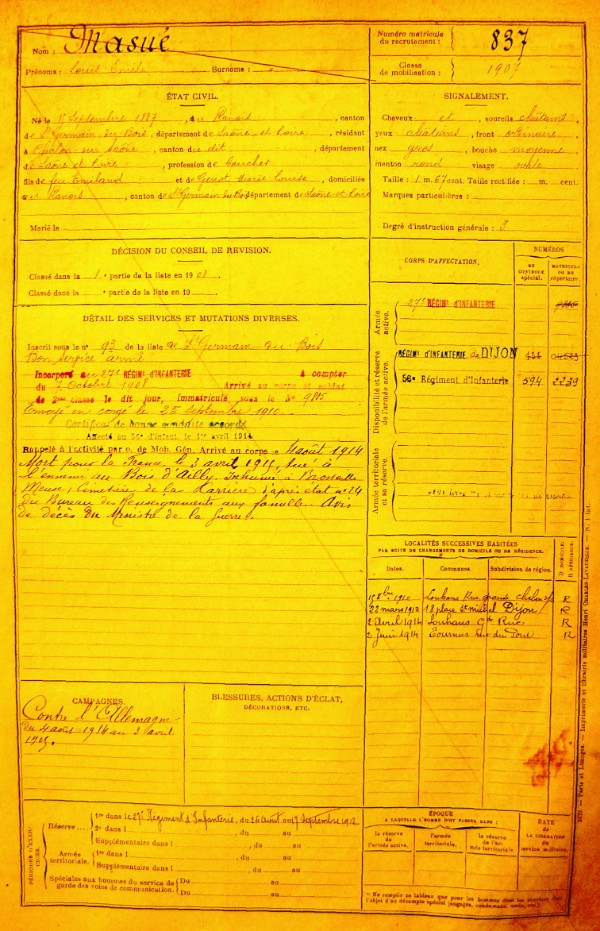 Nom : Masué
Prénoms : Louis Emile Surnoms :
Numéro matricule du recrutement : 837
Classe de mobilisation : 1907
ÉTAT CIVIL.
Né le 15 Septembre 1887, au Planois, canton
de St Germain du Bois, département de Saône et Loire, résidant
à Chalon sur Saône, canton du dit, département
de Saône et Loire, profession de boucher
fils de feu Emiland et de Genot Marie Louise, domiciliés
au Planois, canton de St Germain du Bois, département de Saône et Loire
Marié le
SIGNALEMENT.
Cheveux et, sourcils châtains,
yeux châtains, front ordinaire,
nez gros, bouche moyenne
menton rond visage ovale
Taille : 1 m. 67 cent. Taille rectifiée : 1 m. cent.
Marques particulières :
Degré d'instruction générale : 3
DÉCISION DU CONSEIL DE REVISION.
Classé dans la 1e partie de la liste en 1908
Classé dans la e partie de la liste en 19
DÉTAIL DES SERVICES ET MUTATIONS DIVERSES.
Inscrit sous le no 93 de la liste de St Germain du Bois
Bon service armé
Incorporé au 27e RÉGIMENT D'INFANTERIE à compter
du 7 Octobre 1908 Arrivé au corps et soldat
de 2me classe le dit jour, immatriculé sous le No 9815
Envoyé en congé le 25 Septembre 1910
Certificat de bonne conduite accordé
Affecté au 56e d'Infant. le 1er avril 1914
Rappelé à l'activité par o. de Mob. Gén. Arrivé au corps le 4 août 1914
Mort pour la France le 3 avril 1915, tué à
l'ennemi au Bois d'Ailly. Inhumé à
Meuse, Cimetière de la Carrière d'après état no 24
du Bureau de Renseignements aux familles. Avis
de décès du Ministre de la Guerre.
CORPS D'AFFECTATION.
NUMÉROS
AU CONTROLE spécial.
MATRICULE OU AU répertoire.
Armée active.
27e RÉGIMENT D'INFANTERIE
Disponibilité et réserve de l'armée active.
RÉGIMENT D'INFANTERIE de DIJON
56e Régiment d'Infanterie 594 2239
Armée territoriale et sa réserve
LOCALITÉS SUCCESSIVES HABITÉES
PAR SUITE DE CHANGEMENTS DE DOMICILE OU DE RÉSIDENCE.
Dates. Communes. Subdivision de région. D. DOMICILE. R. RÉSIDENCE.
1910 Louhans Rue R
22 mars 1912 18 place St michel Dijon R
2 Avril 1914 Louhans Gde Rue R
2 Juin 1914 Tournus rue du Pont R
CAMPAGNES.
Contre l'Allemagne
du 4 août 1914 au 3 avril
1915.
BLESSURES, ACTIONS D'ÉCLAT,
DÉCORATIONS, ETC.
PÉRIODES D'EXERCICES.
Réserve
1re dans le 27e Régiment d'Infanterie, du 26 Août au 17 Septembre 1912
2e dans l , du au
Supplémentaire dans l , du au
Armée territoriale.
1re dans l , du au
Supplémentaire dans l , du au
Spéciales aux hommes du service de garde des voies de communication.
Du au
Du au
ÉPOQUE
A LAQUELLE L'HOMME DOIT PASSER DANS :
la réserve de l'armée active.
l'armée territoriale.
la réserve de l'armée territoriale
DATE
DE LA LIBÉRATION du service militaire.
Ne remplir ce tableau que pour les hommes dont les services font l'objet d'un décompte spécial (engagés, condamnés, omis, etc.)
Paris et Limoges. — Imprimerie et librairie militaires Henri CHARLES-LAVAUZELLE.